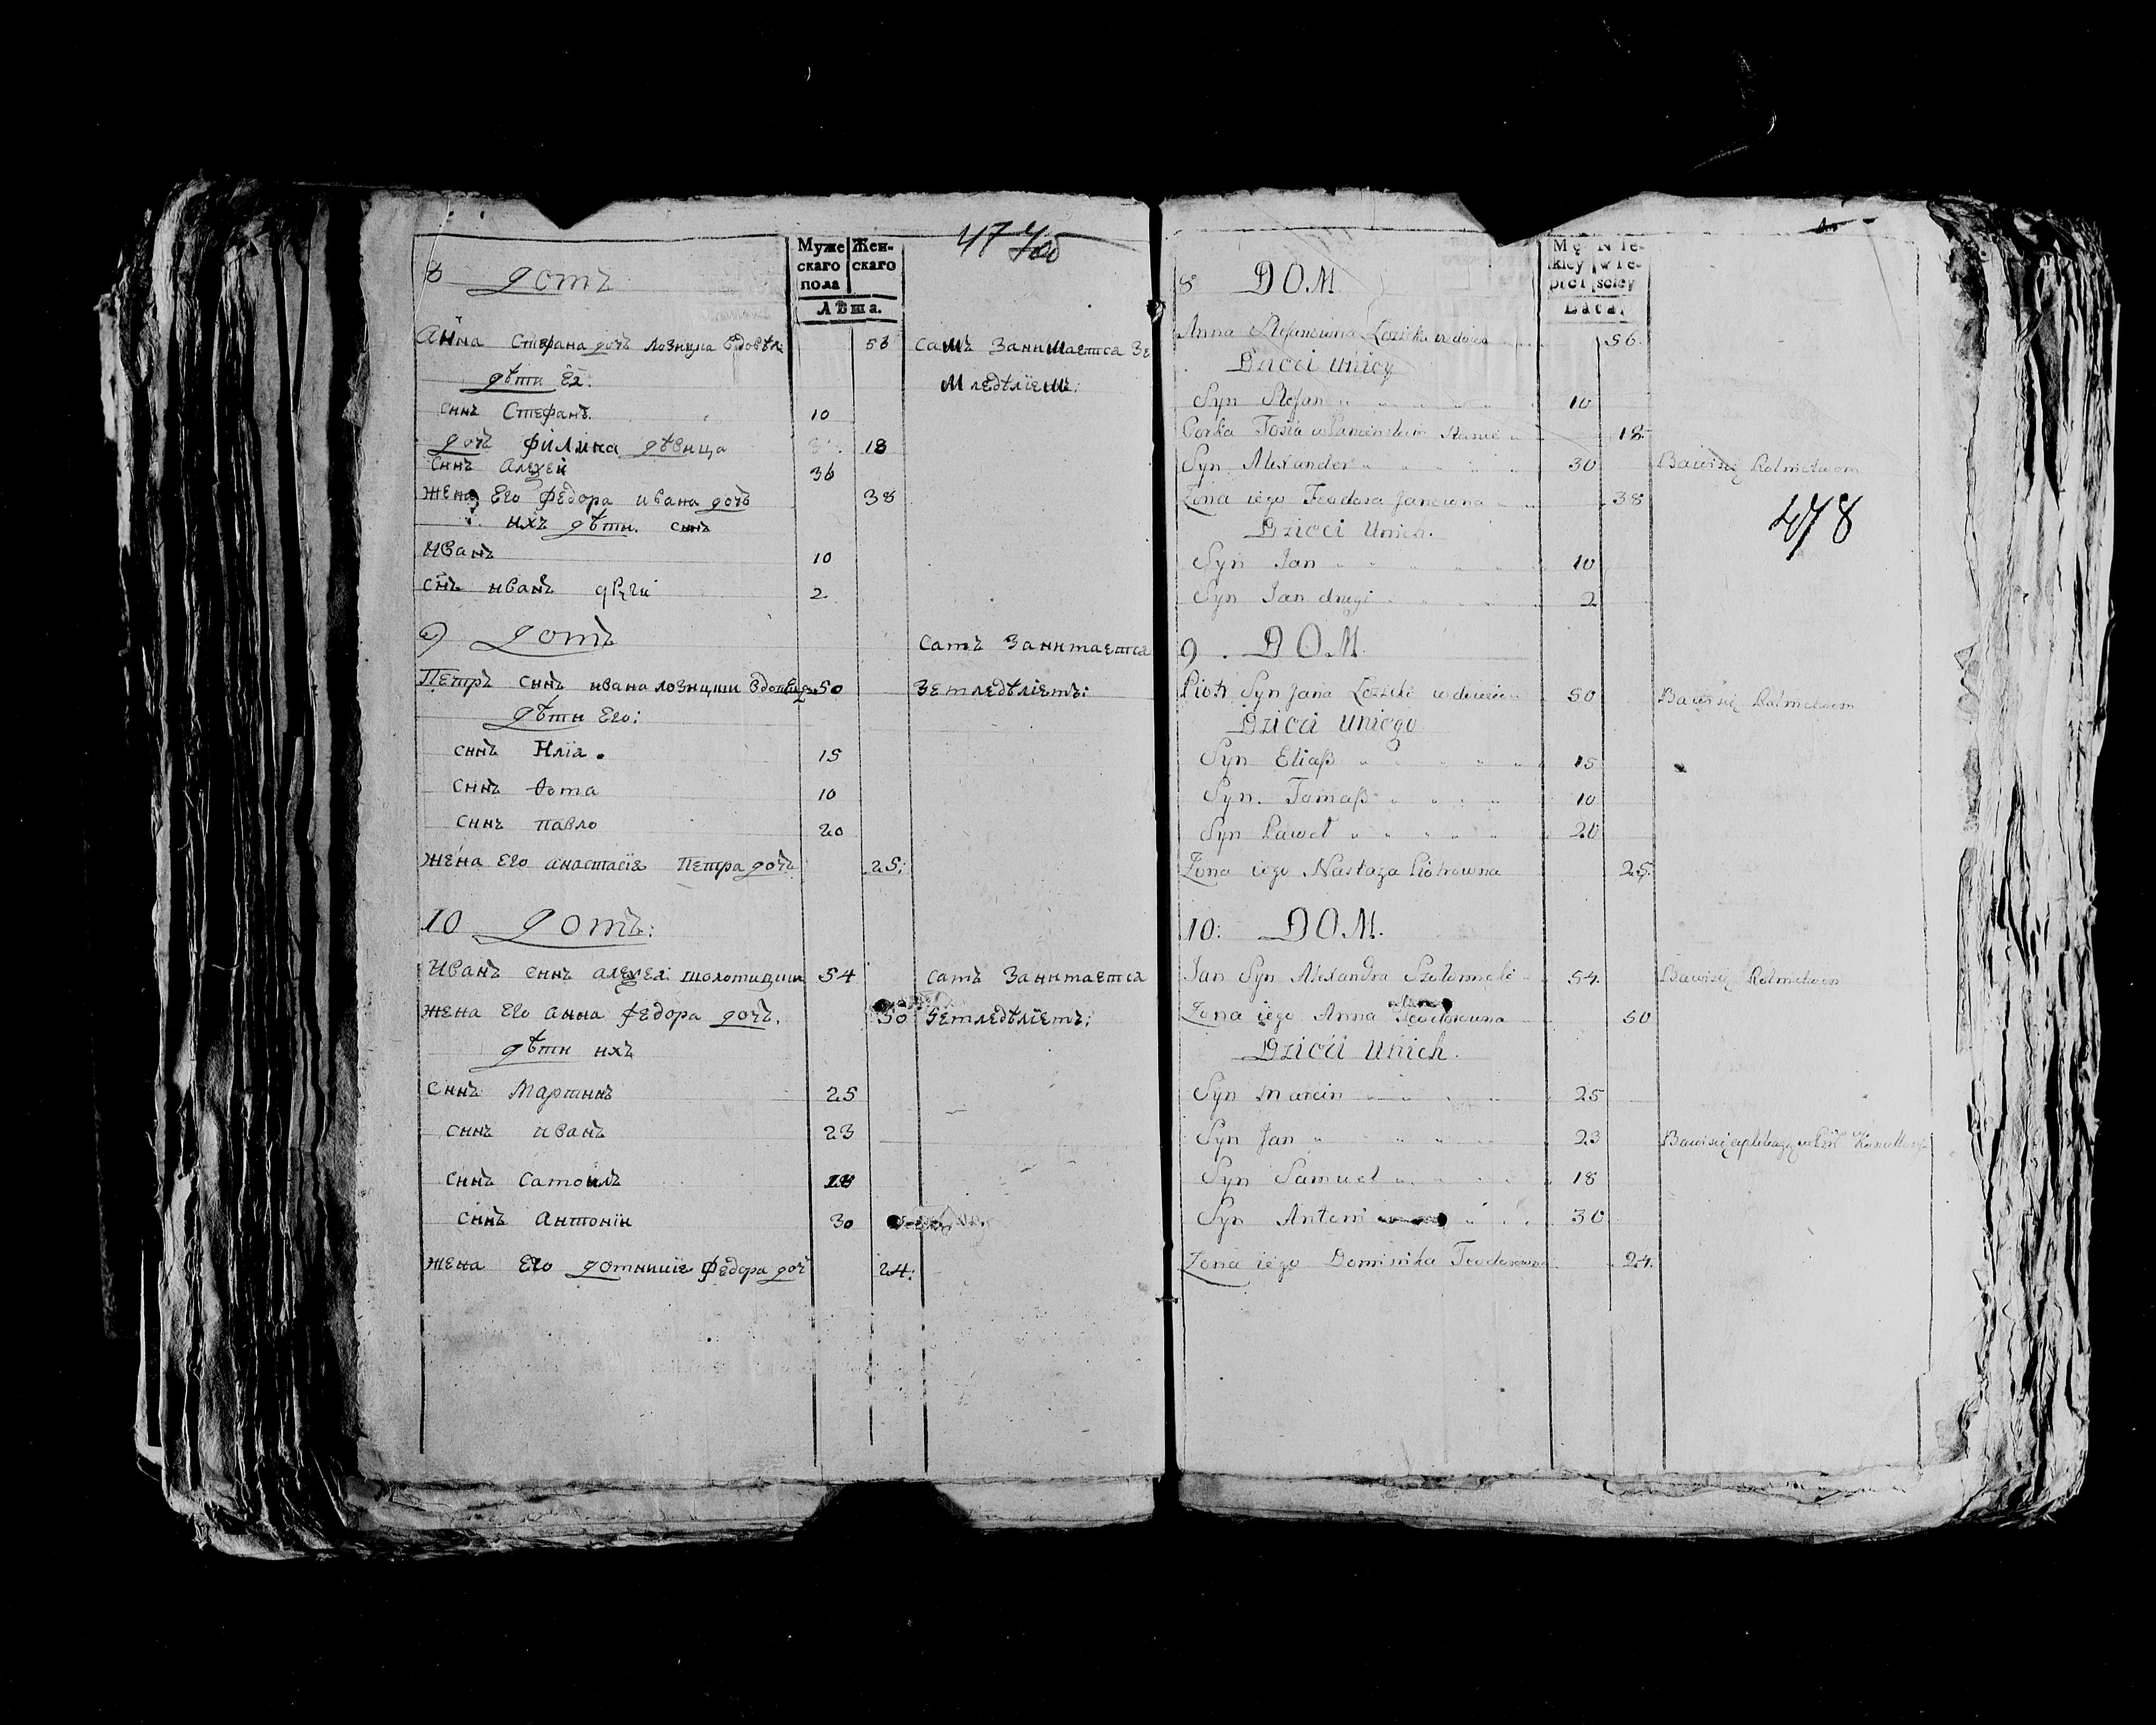 47 7об
Муже Жен-
скаго скаго
пола
Лѣта.
8 домъ
Анна Стефана дочъ Лозицка вдовѣле 56 самъ Занимаетса Зе
дѣти Ея: Мледѣлїемъ:
синъ Стефанъ. 10
дочъ Филина дѣвица 18
синъ Алеѯей 36
жена Его Федора ивана дочъ 38
ихъ дѣти. синъ
иванъ 10
синъ иванъ другі 2
9 домъ самъ Занимаетса
Петръ синъ ивана лозицки вдовицъ 50 Земледѣліемъ:
дѣти Его:
синъ Илїа. 15
синъ Ѳома 10
синъ павло 20
жена Его анастасїе Петра дочъ 25:
10 домъ:
Иванъ синъ алеѯея шоломицки 54 самъ Занимаетса
жена Его анна Федора дочъ. 50 Земледѣлїемъ:
дѣти ихъ
синъ Мартинъ 25
синъ иванъ 23
синъ Самоилъ 18
синъ антонїи 30
жена Его домникїе Федора доч 24:
Mę Nie-
kiey wie-
płci sciey
Lata,
8 DOM
Anna Stefanowna Łozicka wdowa 56.
Dzieci u niey
Syn Stefan 10
Corka Tosia w Panienskim stanie 18
Syn Alexander 30 Bawi się Rolnictwem
Zona iego Teodora Janowna 38
478
Dzieci u nich.
Syn Jan 10
Syn Jan drugi 2
9. DOM.
Piotr Syn Jana Łozicki wdowiec 50 Bawi się Rolnictwem
Dzieci u niego
Syn Eliaß 15
Syn. Tomaß 10
Syn Paweł 20
Zona iego Nastazya Piotrowna 25.
10: DOM.
Jan Syn Alexandra Szołomicki 54. Bawi się Rolnictwem
Zona iego Anna Teodorowna 50
Dzieci u nich.
Syn Marcin 25
Syn Jan 23 Bawi się aplikacyą
Syn Samuel 18
Syn Antoni 30
Zona iego Dominika Teodorowna 24.